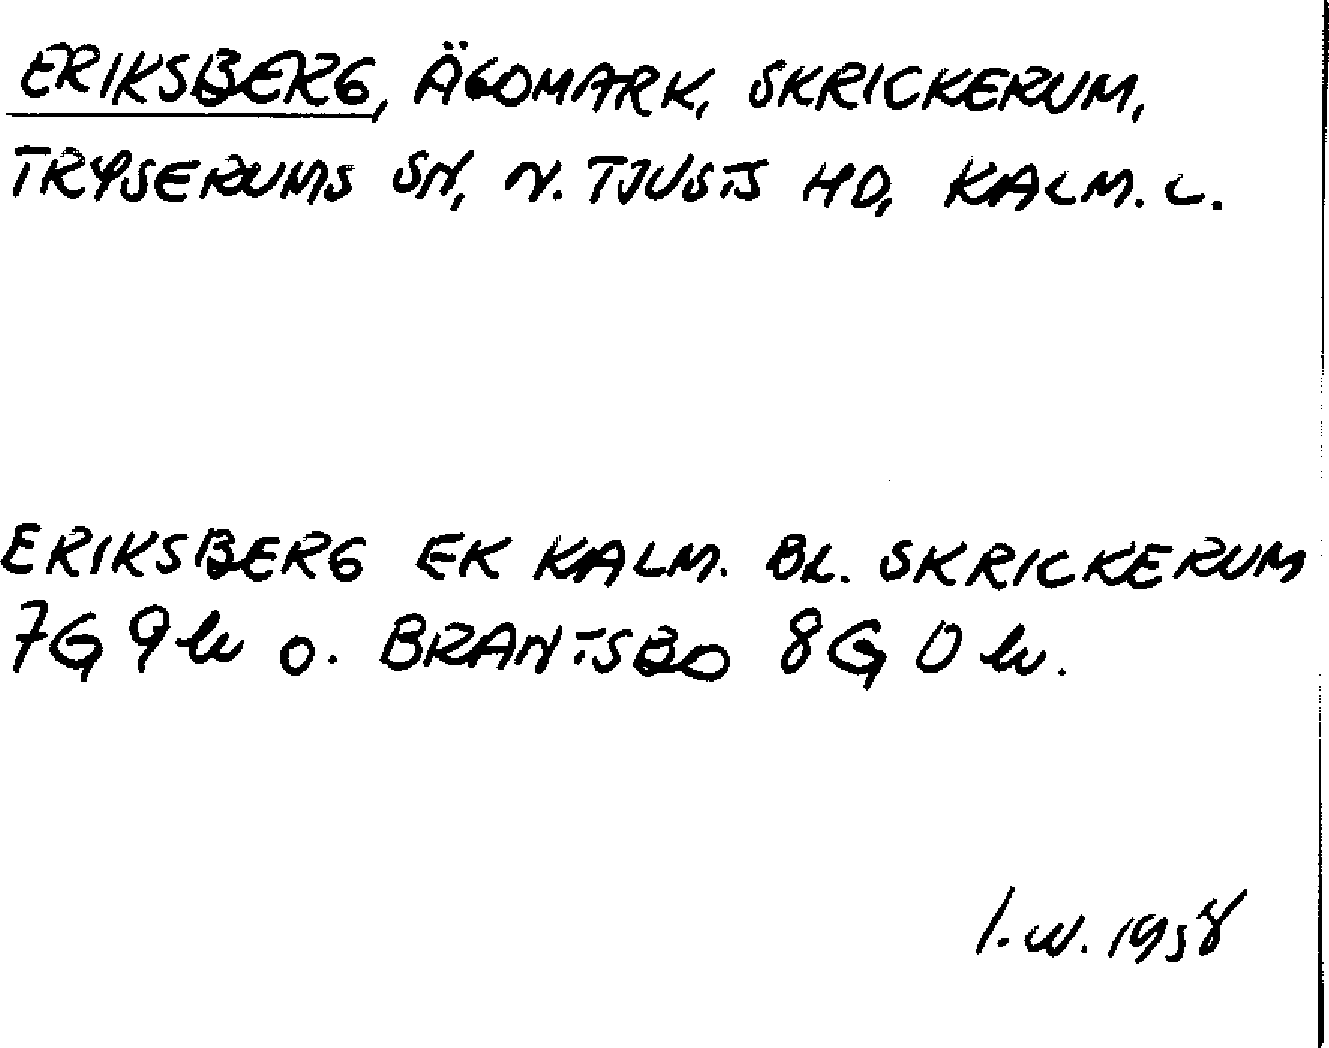 ERIKSBERG, ÄGOMARK, SKRICKERUM,
TRYSERUMS SN, N. TJUSTS HD, KALM. L.
ERIKSBERG EK KALM. BL. SKRICKERUM
7G 9 h o. BRANTSBO 8G 0 h.
I. W. 1958